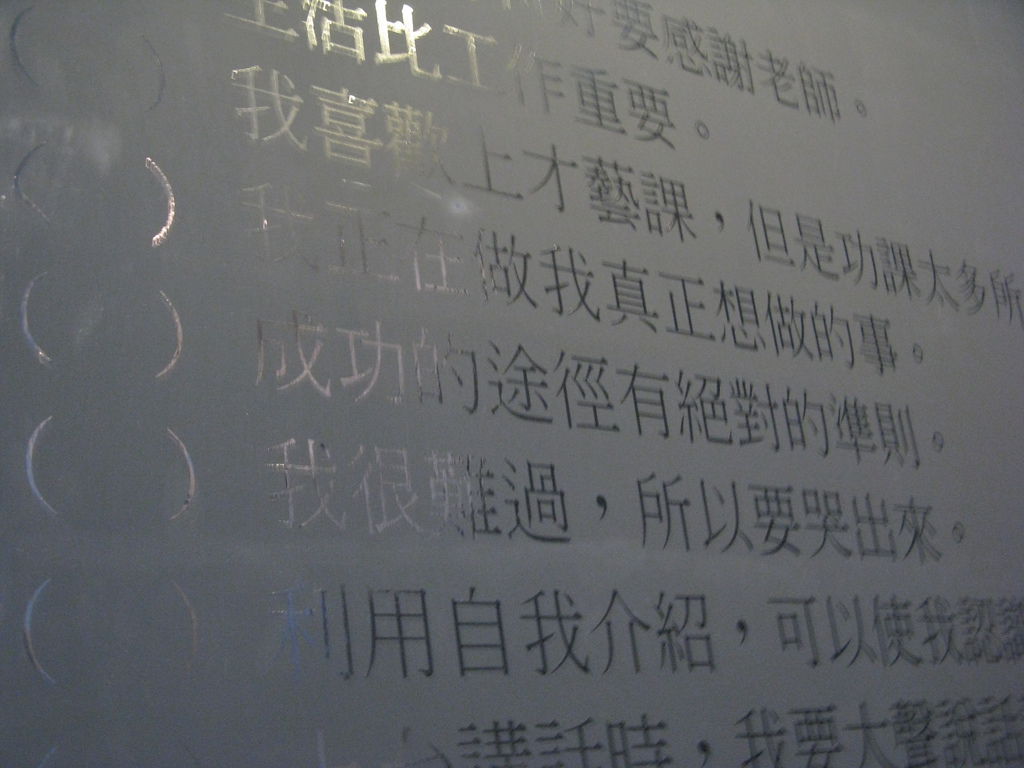 好要感謝老師。
生活比工作重要。
( ) 我喜歡上才藝課，但是功課太多所
( ) 我正在做我真正想做的事。
( ) 成功的途徑有絕對的準則。
( ) 我很難過，所以要哭出來。
( ) 利用自我介紹，可以使我認識
講話時，我要大聲說話